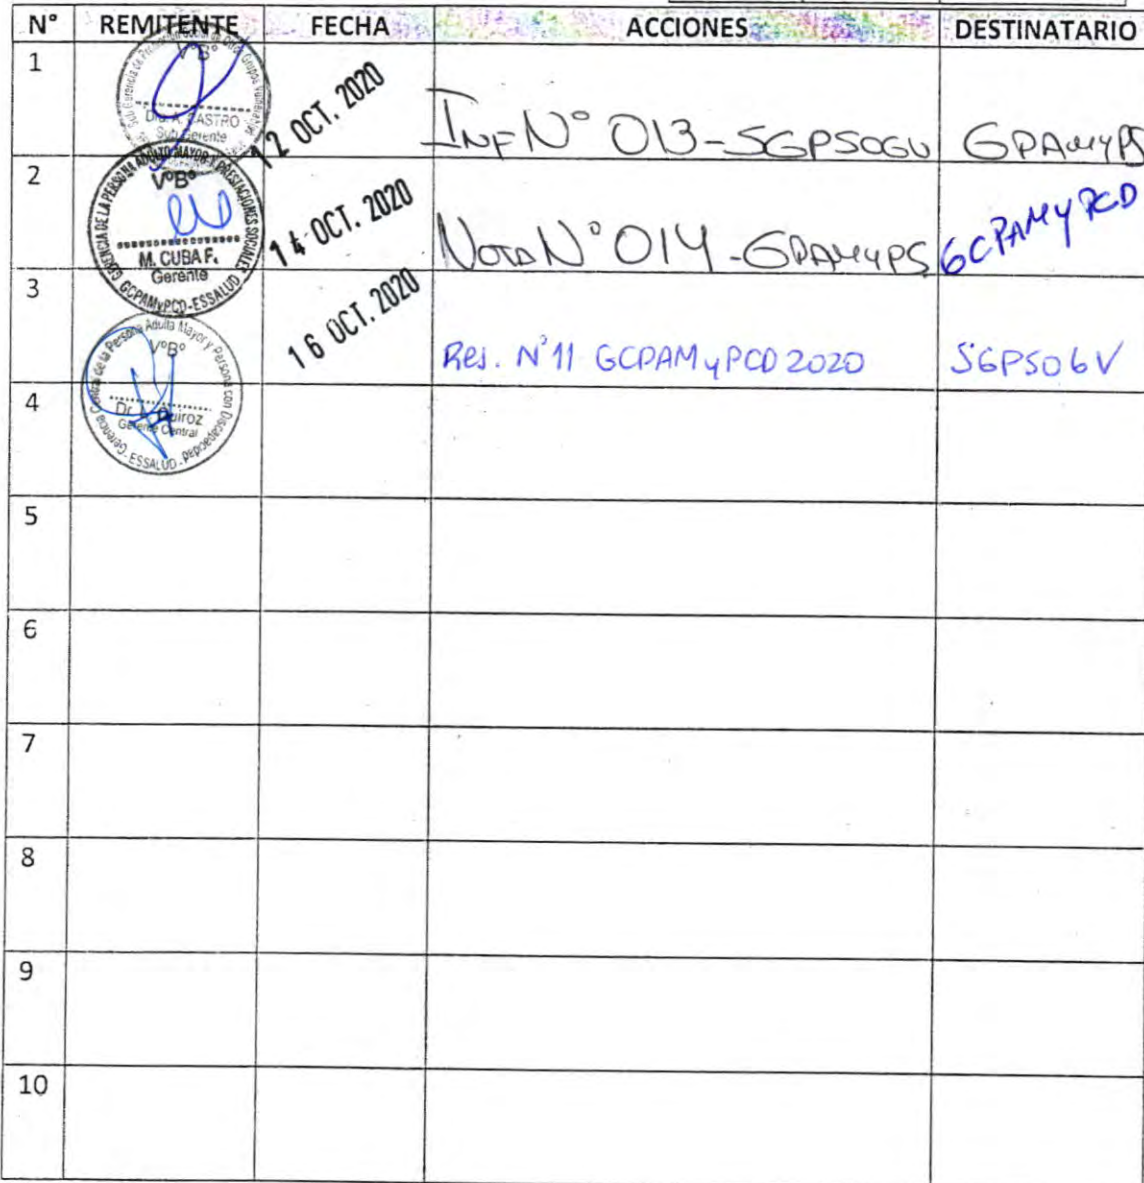 N° REMITENTE FECHA ACCIONES DESTINATARIO
1
V°B°
Dra. A. CASTRO
Sub Gerente
12 OCT. 2020
INF N° 013-SGPSOGV GPAMyPS
2
GERENCIA DE LA PERSONA ADULTO MAYOR Y PRESTACIONES SOCIALES
V°B°
M. CUBA F.
Gerente
GCPAMyPCD-ESSALUD
14 OCT. 2020
Nota N° 014-GPAMyPS GCPAMyPCD
3
Gerencia Central de la Persona Adulta Mayor y Persona con Discapacidad
V°B°
Quiroz
Gerente Central
ESSALUD
16 OCT. 2020
Res. N°11 GCPAMyPCD 2020 SGPSOGV
4
5
6
7
8
9
10